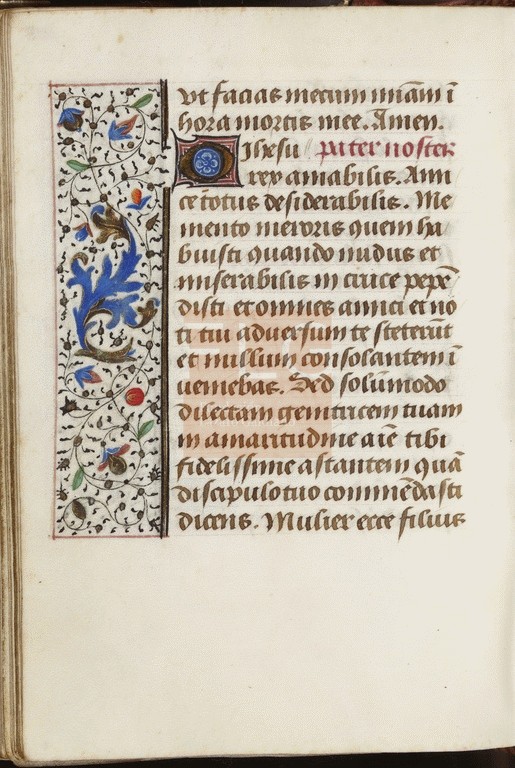 Vt facias mecum miām ī
hora mortis mee. Amen.
O Ihesu pater noster
rex amabilis. Ami
ce totus desiderabilis. Me
mento meroris quem ha
buisti quando nudus et
miserabilis in cruce pepē
disti et omnes amici et no
ti tui adversum te steterūt
et nullum consolantem ī
veniebas. Sed solūmodo
dilectam genitricem tuam
in amaritudine aīe tibi
fidelissime astantem quā
discipulo tuo commēdasti
dicens. Mulier ecce filius